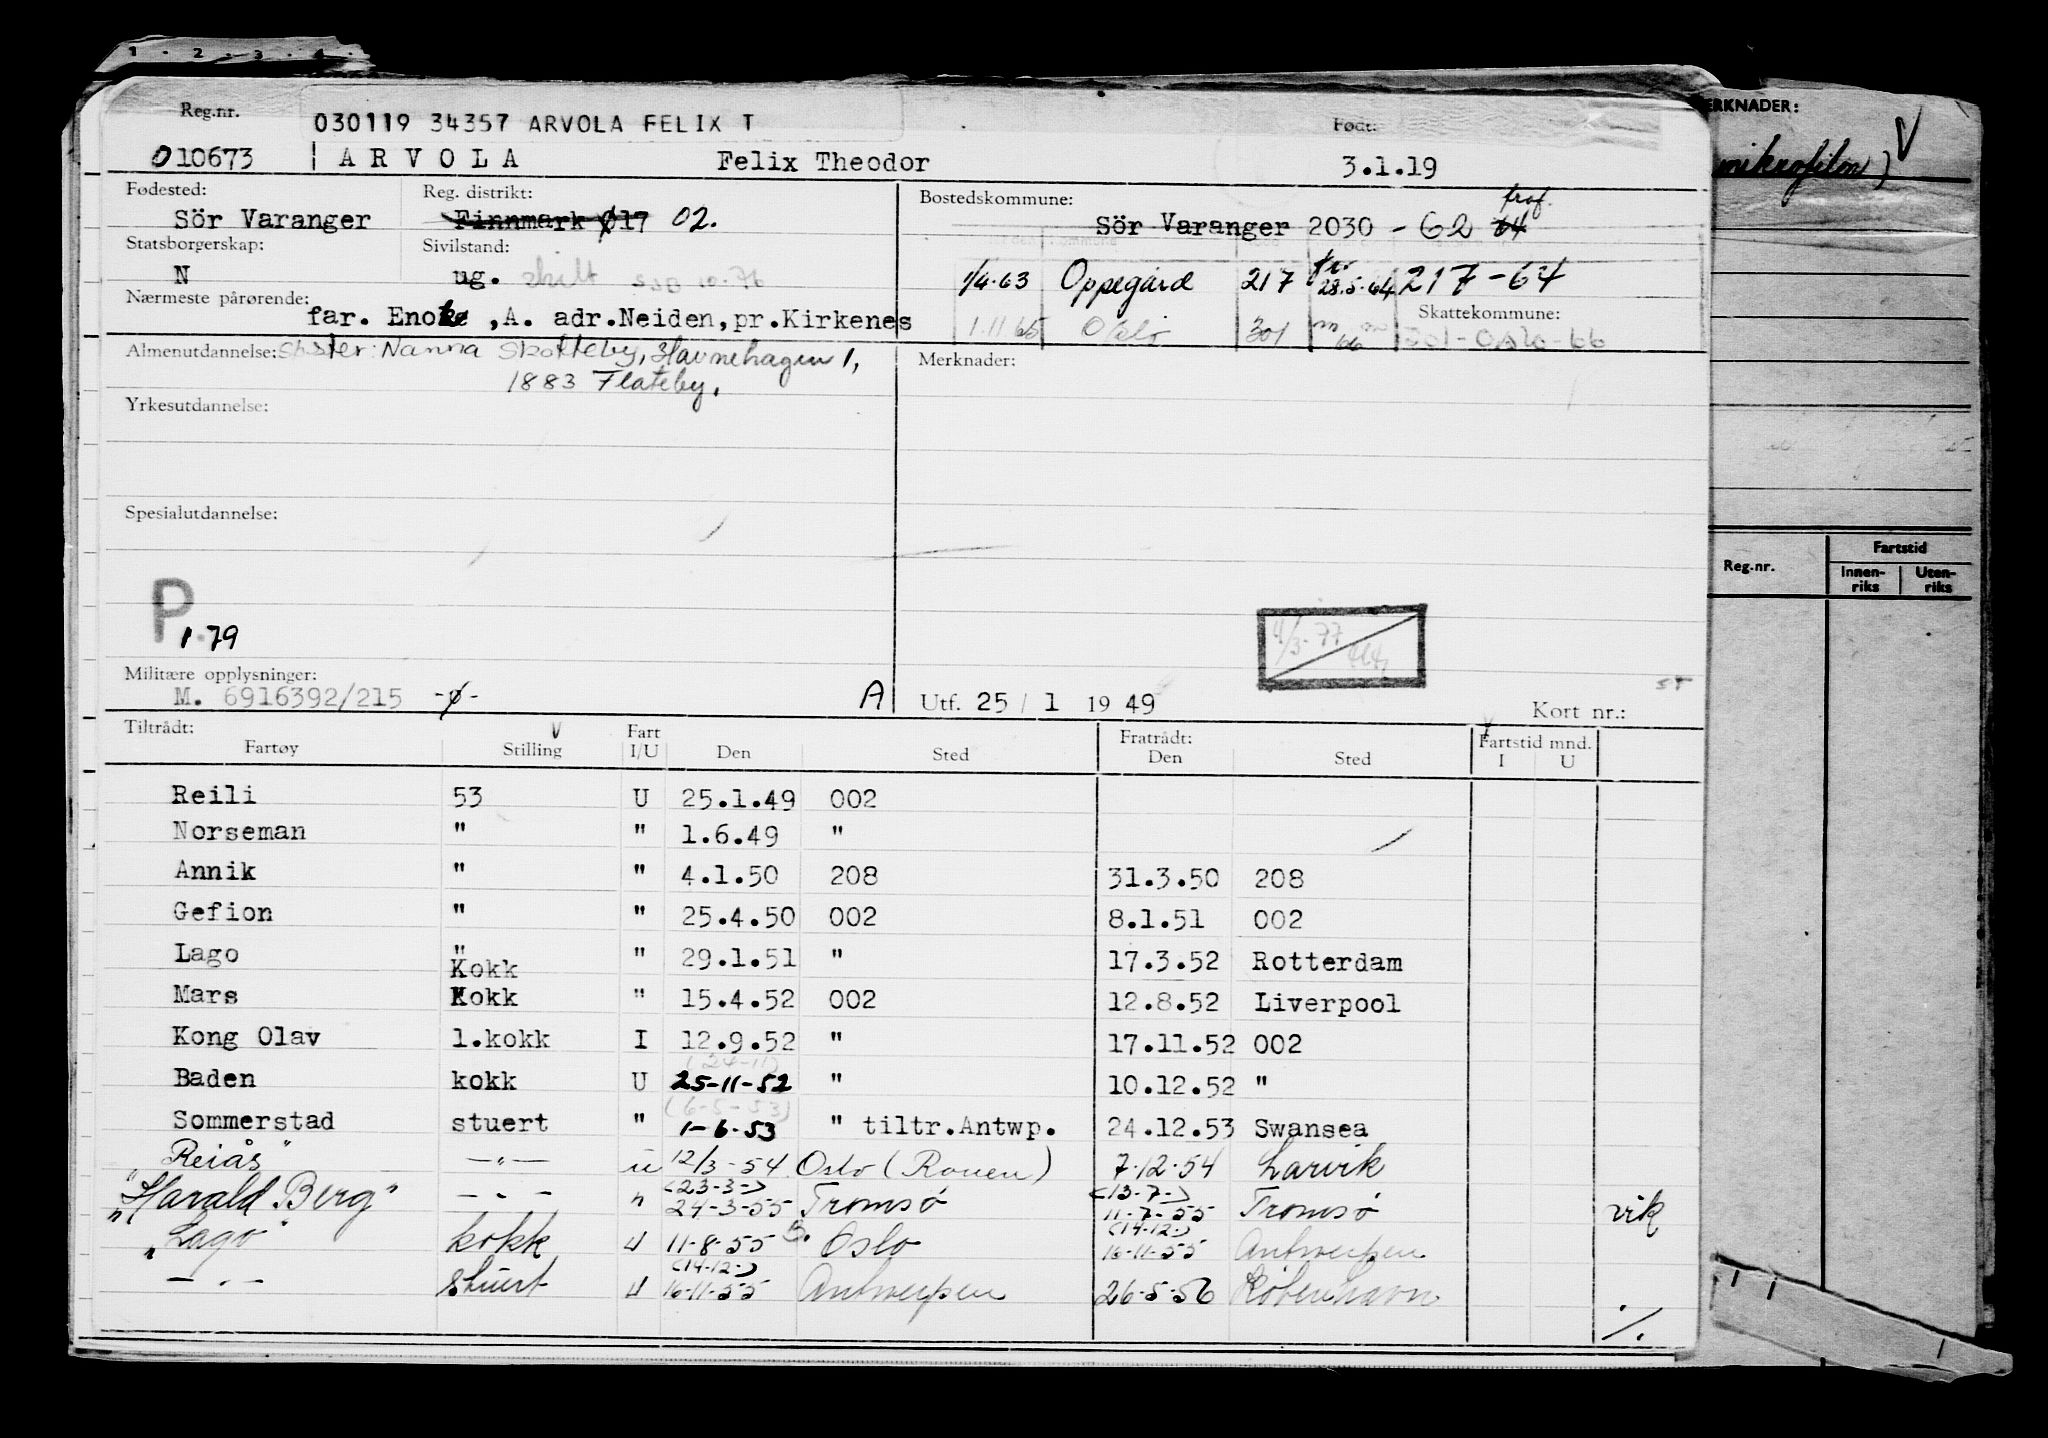 1 - 2 - 3 - 4
Reg.nr. 030119 34357 ARVOLA FELIX T Født:
010673 ARVOLA Felix Theodor 3.1.19
Fødested: Reg. distrikt: Bostedskommune:
Sör Varanger Finnmark Ø17 02. Sör Varanger 2030 - 62 64
Statsborgerskap: Sivilstand:
N ug. skilt SJB 10-76 1/4-63 Oppegård 217 28.5.64 217-64
Nærmeste pårørende: Skattekommune:
far. Enok ,A. adr.Neiden,pr.Kirkenes 1.11 65 Oslo 301 301-Oslo-66
Almenutdannelse: søster: Nanna Skotteby, Havnehagen 1, Merknader:
1883 Flateby.
Yrkesutdannelse:
Spesialutdannelse:
P
1.79
4/3-77
Militære opplysninger:
M. 6916392/215 -ø- A Utf. 25 / 1 1949 Kort nr.:
Tiltrådt: Fart Fratrådt: Fartstid mnd.
Fartøy Stilling I/U Den Sted Den Sted I U
Reili 53 U 25.1.49 002
Norseman " " 1.6.49 "
Annik " " 4.1.50 208 31.3.50 208
Gefion " " 25.4.50 002 8.1.51 002
Lago " Kokk " 29.1.51 " 17.3.52 Rotterdam
Mars Kokk " 15.4.52 002 12.8.52 Liverpool
Kong Olav 1.kokk I 12.9.52 " 17.11.52 002
(24-11)
Baden kokk U 25-11-52 " 10.12.52 "
(6-5-53)
Sommerstad stuert " 1-6-53 " tiltr.Antwp. 24.12.53 Swansea
"Reiås" —"— u 12/3-54 Oslo (Rouen) 7-12-54 Larvik
(23-3-) (13-7-)
"Harald Berg" —"— " 24-3-55 Tromsø 11-7-55 Tromsø vik
(14-12-)
"Lago" kokk U 11-8-55 B. Oslo 16-11-55 Antwerpen
(14-12-)
—"— stuert U 16-11-55 Antwerpen 26-5-56 København
./.
MERKNADER:
mikrofilm) V
Reg.nr. Fartstid
Innen-riks Uten-riks